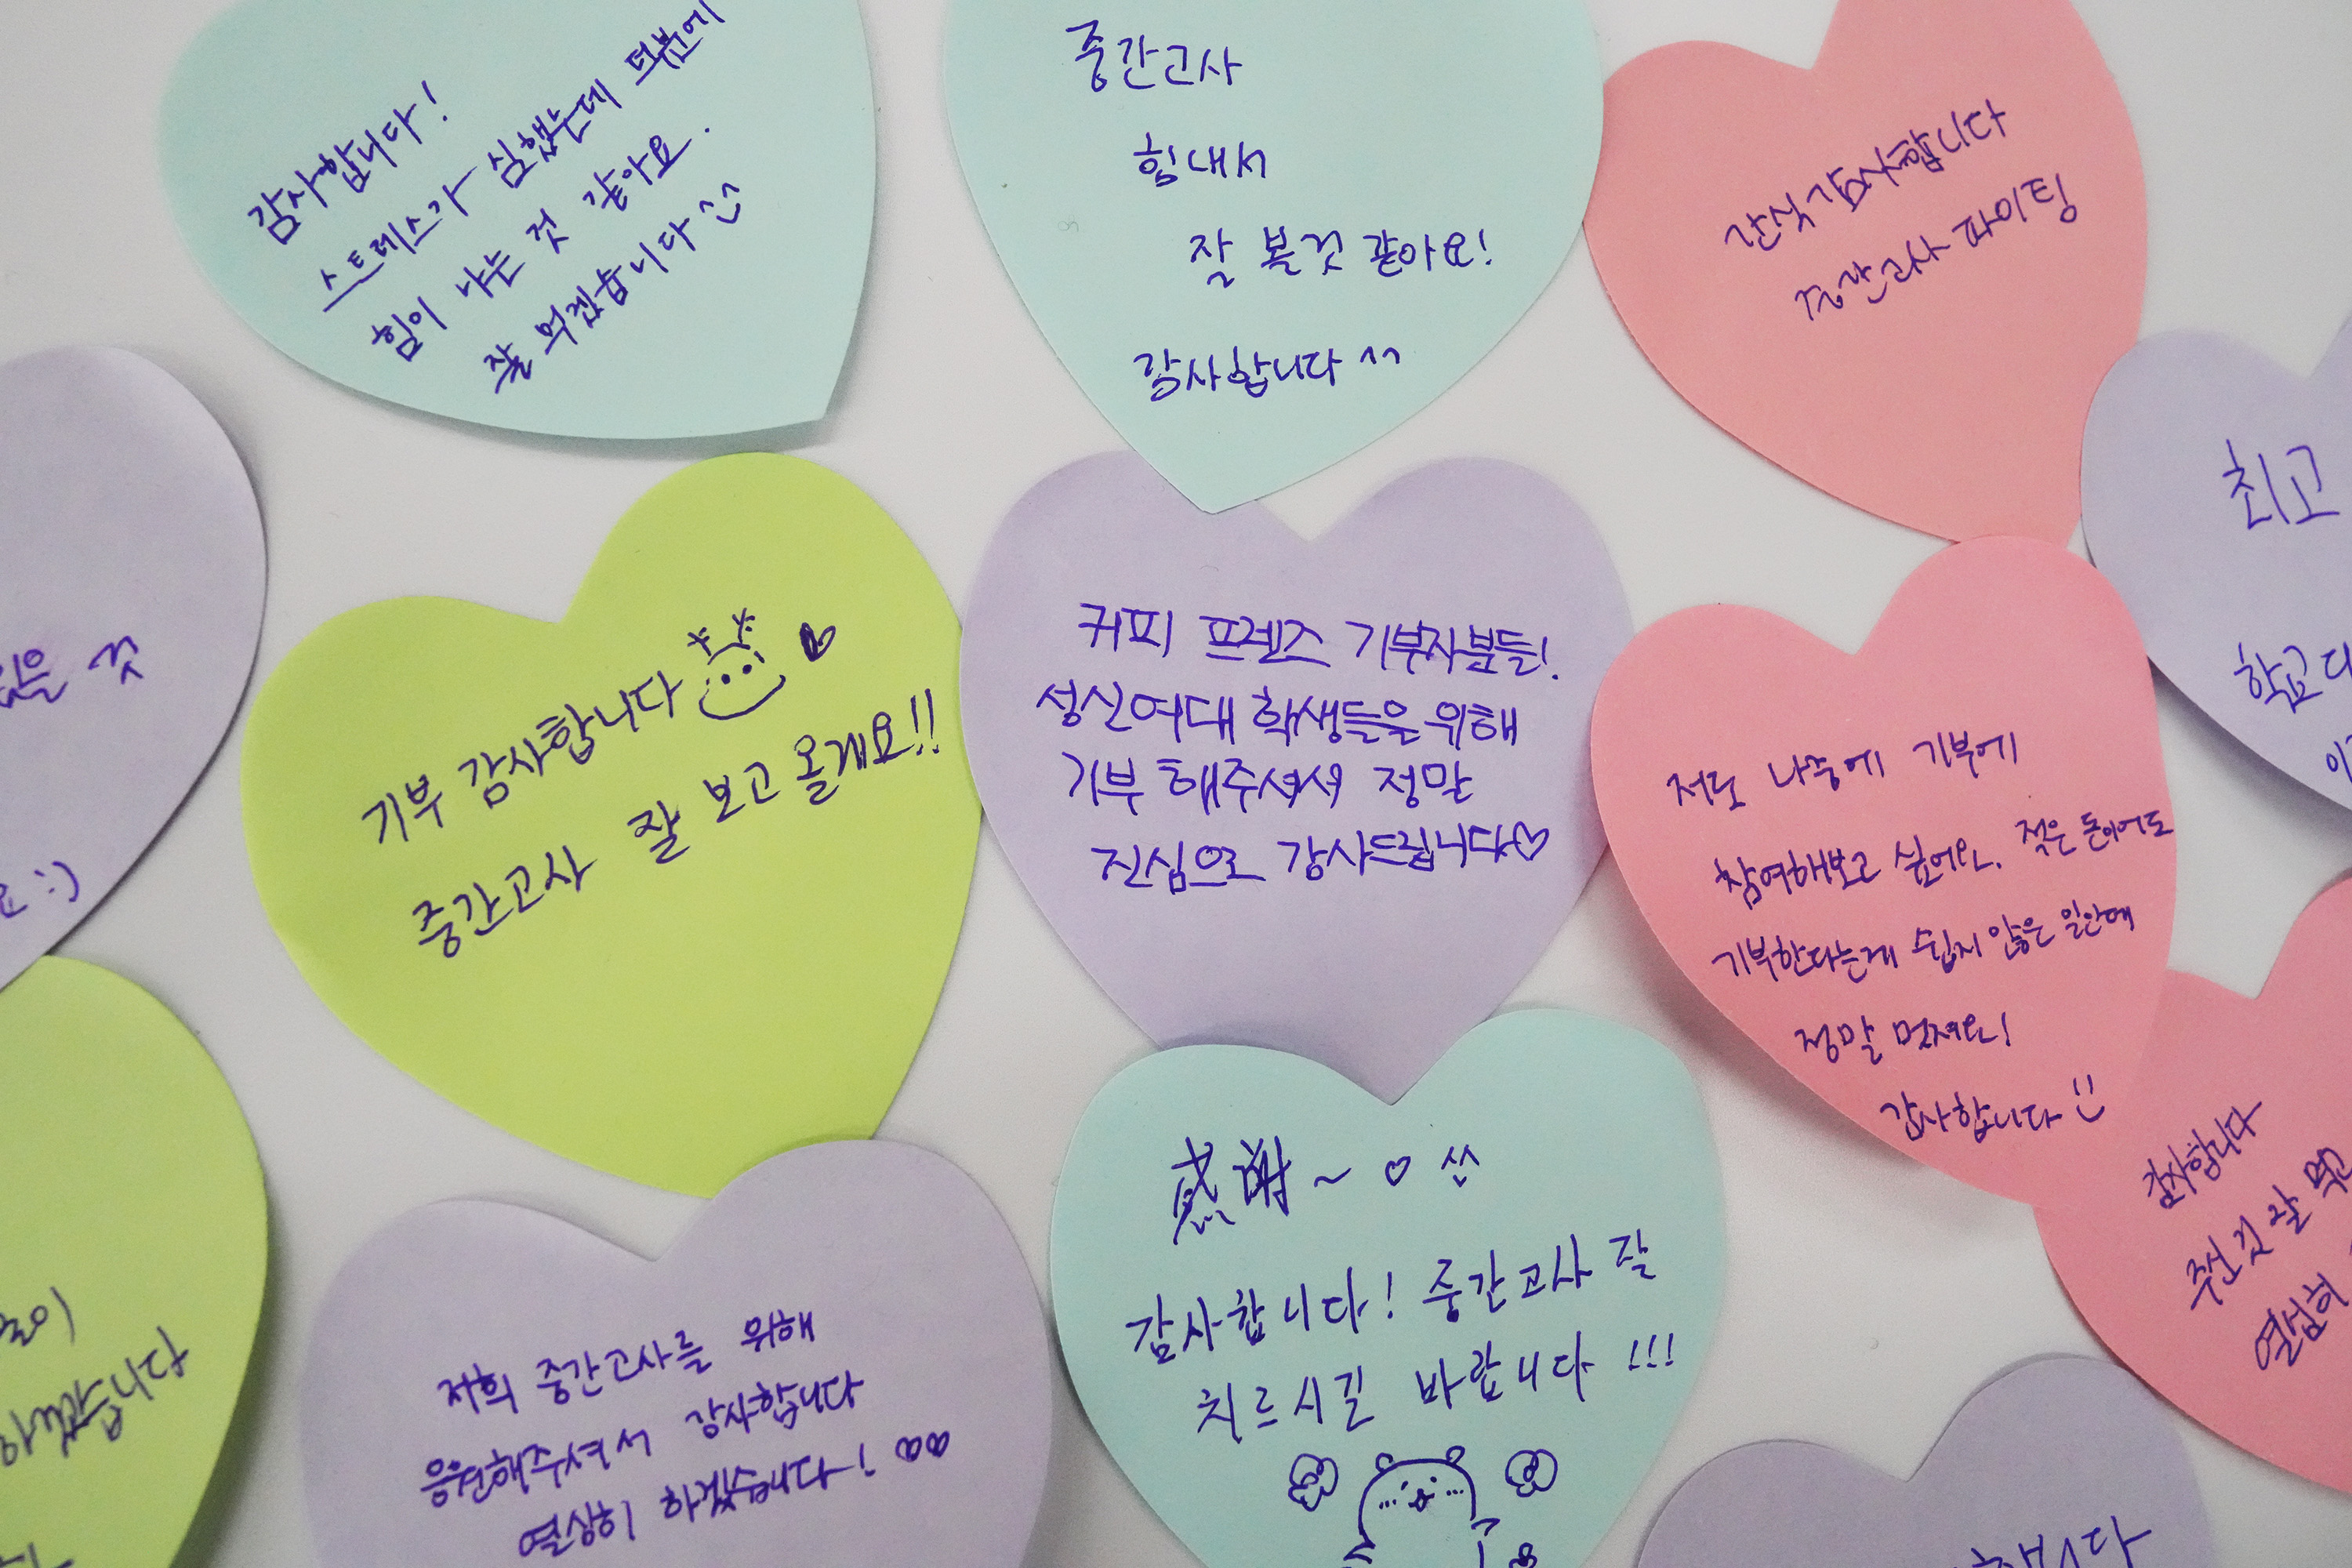 감사합니다!
스트레스가 심했는데 덕분에
힘이 나는 것 같아요.
잘 먹겠습니다 ^^
중간고사
힘내서
잘 볼것 같아요!
감사합니다 ^^
간식 감사합니다
중간고사 파이팅
최고
학교
기부 감사합니다
중간고사 잘 보고 올게요!!
커피 프렌즈 기부자분들!
성신여대 학생들을 위해
기부 해주셔서 정말
진심으로 감사드립니다♡
저도 나중에 기부에
참여해보고 싶어요. 적은 돈이어도
기부한다는게 쉽지 않은 일인데
정말 멋져요!
감사합니다
:)
저희 중간고사를 위해
응원해주셔서 감사합니다
열심히 하겠습니다! ♡♡
感謝~ ♡ ^^
감사합니다! 중간고사 잘
치르시길 바랍니다!!!
감사합니다
주신 것 잘 먹고
열심히